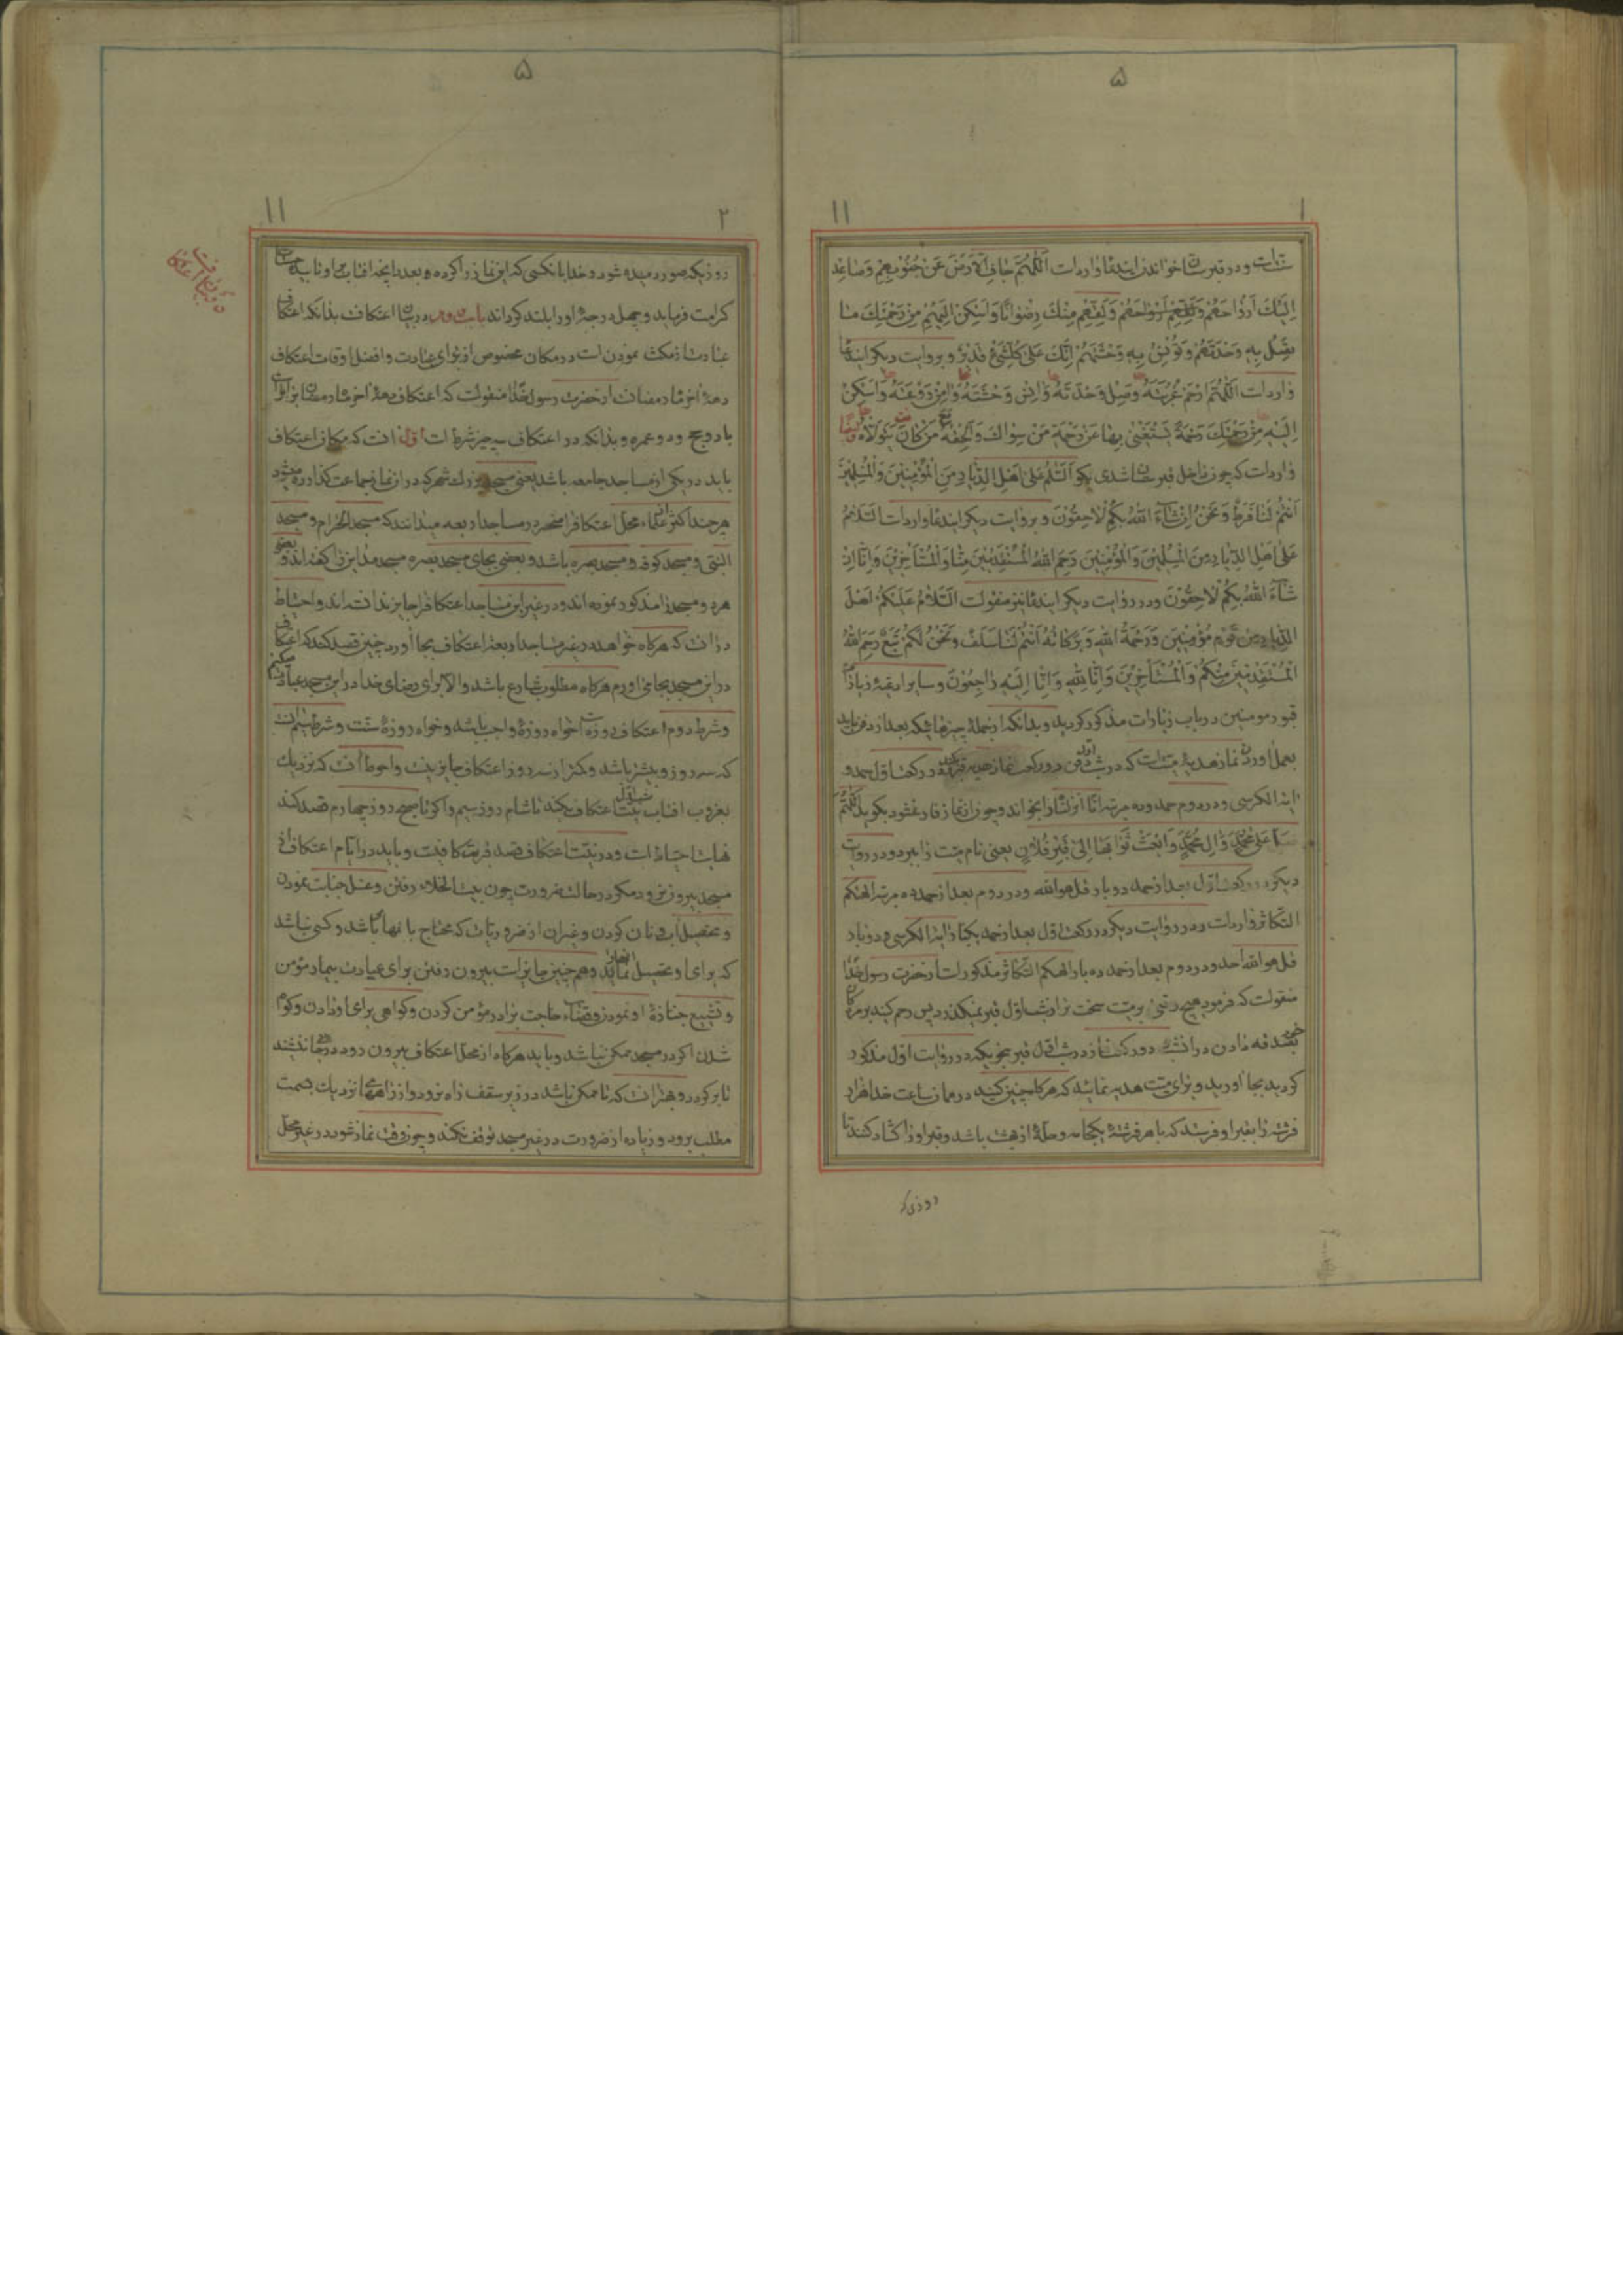 ۵
۱۱
۱
سنت است و در قبرستان خواندن این دعا وارد است اَللّٰهُمَّ جَافِ الْاَرْضَ عَنْ جُنُوبِهِمْ وَصَاعِدْ
اِلَيْكَ اَرْوَاحَهُمْ وَلَقِّهِمْ مِنْكَ رِضْوَانًا وَاَسْكِنْ اِلَيْهِمْ مِنْ رَحْمَتِكَ مَا
تَصِلُ بِهِ وَحْدَتَهُمْ وَتُونِسُ بِهِ وَحْشَتَهُمْ اِنَّكَ عَلٰى كُلِّ شَيْءٍ قَدِيرٌ و بروایت دیگر این دعا
وارد است اَللّٰهُمَّ ارْحَمْ غُرْبَتَهُ وَصِلْ وَحْدَتَهُ وَاٰنِسْ وَحْشَتَهُ وَاٰمِنْ رَوْعَتَهُ وَاَسْكِنْ
اِلَيْهِ مِنْ رَحْمَتِكَ رَحْمَةً يَسْتَغْنِي بِهَا عَنْ رَحْمَةِ مَنْ سِوَاكَ وَاَلْحِقْهُ مَنْ كَانَ يَتَوَلَّاهُ
وارد است که چون داخل قبرستان شدی بگو اَلسَّلَامُ عَلٰى اَهْلِ الدِّيَارِ مِنَ الْمُؤْمِنِينَ وَالْمُسْلِمِينَ
اَنْتُمْ لَنَا فَرَطٌ وَنَحْنُ اِنْ شَاءَ اللّٰهُ بِكُمْ لَاحِقُونَ و بروایت دیگر این دعا وارد است اَلسَّلَامُ
عَلٰى اَهْلِ الدِّيَارِ مِنَ الْمُسْلِمِينَ وَالْمُؤْمِنِينَ رَحِمَ اللّٰهُ الْمُسْتَقْدِمِينَ مِنَّا وَالْمُسْتَأْخِرِينَ وَاِنَّا اِنْ
شَاءَ اللّٰهُ بِكُمْ لَاحِقُونَ و در روایت دیگر این دعا نیز منقولست اَلسَّلَامُ عَلَيْكُمْ اَهْلَ
الدِّيَارِ مِنْ قَوْمٍ مُؤْمِنِينَ وَرَحْمَةُ اللّٰهِ وَبَرَكَاتُهُ اَنْتُمْ لَنَا سَلَفٌ وَنَحْنُ لَكُمْ تَبَعٌ رَحِمَ اللّٰهُ
الْمُسْتَقْدِمِينَ مِنْكُمْ وَالْمُسْتَأْخِرِينَ وَاِنَّا لِلّٰهِ وَاِنَّا اِلَيْهِ رَاجِعُونَ و سایر ادعیه زیارت
قبور مومنین در باب زیارات مذکور گردید و بدانکه از جمله چیزهائیکه بعد از دفن باید
بعمل آورد نماز هدیه میت است که در شب اول دفن دو رکعت نماز هدیه در رکعت اول حمد و
آیة الکرسی و در دوم حمد و ده مرتبه انا انزلناه را بخواند و چون از نماز فارغ شود بگوید اَللّٰهُمَّ
عَلٰى مُحَمَّدٍ وَاٰلِ مُحَمَّدٍ وَابْعَثْ ثَوَابَهَا اِلٰى قَبْرِ فُلَانٍ یعنی نام میت را ببرد و در روایت
دیگر در رکعت اول بعد از حمد دو بار قل هو الله و در دوم بعد از حمد ده مرتبه الهیکم
التکاثر وارد است و در روایت دیگر در رکعت اول بعد از حمد یکبار آیة الکرسی و دو بار
قل هو الله احد و در دوم بعد از حمد ده بار الهیکم التکاثر مذکور است از حضرت رسول خدا
منقولست که فرمود هیچ وقتی بر میت سخت تر از شب اول قبر نمیگذرد پس رحم کنید بر مردگان
بصدقه دادن در آنشب دو رکعت نماز در شب اول قبر بنحویکه در روایت اول مذکور
گردید بجا آورید و برای میت هدیه نمائید که هرگاه چنین کنید در همان ساعت خدا هزار
فرشته را بقبر او فرستد که با هر فرشته یکجامه و حلّهٔ از بهشت باشد و قبر او را گشاد کنند تا
روزی که
۵
۱۱
۲
روزیکه صور دمیده شود و خدا بآنکسی که این نماز را کرده بعدد آنچه آفتاب بر او تابیده
کرامت فرماید و چهل درجه او را بلند گرداند باب دوم در بیان اعتکاف بدانکه اعتکاف
عبادت از مکث نمودن است در مکان مخصوص از برای عبادت و افضل اوقات اعتکاف
دههٔ آخر ماه رمضان است از حضرت رسول خدا منقولست که اعتکاف دههٔ آخر ماه رمضان برابر است
با دو حج و دو عمره و بدانکه در اعتکاف سه چیز شرط است اول آنست که مکان اعتکاف
باید در یکی از مساجد جامعه باشد یعنی مسجد بزرگ شهر که در آن نماز جماعت گذارده میشود
هر چند اکثر علماء محل اعتکاف را منحصر در مساجد اربعه میدانند که مسجد الحرام و مسجد
النبی و مسجد کوفه و مسجد بصره باشد و بعضی بجای مسجد بصره مسجد مداین را گفته‌اند و بعضی
هر دو مسجد را مذکور نموده‌اند و در غیر این مساجد اعتکاف را جایز ندانسته‌اند و احتیاط
در آنست که هرگاه خواهد در غیر مساجد اربعه اعتکاف بجا آورد چنین قصد کند که اعتکاف
در این مسجد بجا می‌آورم هرگاه مطلوب شارع باشد والا برای رضای خدا در این مسجد عبادت میکنم
و شرط دوم اعتکاف روزه است خواه روزهٔ واجب باشد و خواه روزهٔ سنت و شرط سیم آنست
که سه روز و بیشتر باشد و کمتر از سه روز اعتکاف جایز نیست و احوط آنست که نزدیک
بغروب آفتاب شب اول نیت اعتکاف بکند تا شام روز سیم و اگر تا صبح روز چهارم قصد کند
نهایت احتیاط است و در نیت اعتکاف قصد قربت کافیست و باید در ایام اعتکاف از
مسجد بیرون نرود مگر در حالت ضرورت چون بیت الخلاء رفتن و غسل جنابت نمودن
و تحصیل آب و نان کردن و غیر آن از ضروریات که محتاج بآنها باشد و کسی نباشد
که برای او تحصیل آنها نماید و همچنین جایز است بیرون رفتن برای عیادت بیمار مؤمن
و تشییع جنازهٔ او نمودن و قضاء حاجت برادر مؤمن کردن و گواهی برای او دادن و گواه
شدن اگر در مسجد ممکن نباشد و باید هرگاه از محل اعتکاف بیرون رود در جائی ننشیند
تا برگردد و بهتر آنست که تا ممکن باشد در زیر سقف راه نرود و از راههای نزدیک بسمت
مطلب برود و زیاده از ضرورت در غیر مسجد توقف نکند و چون وقت نماز شود در غیر محل